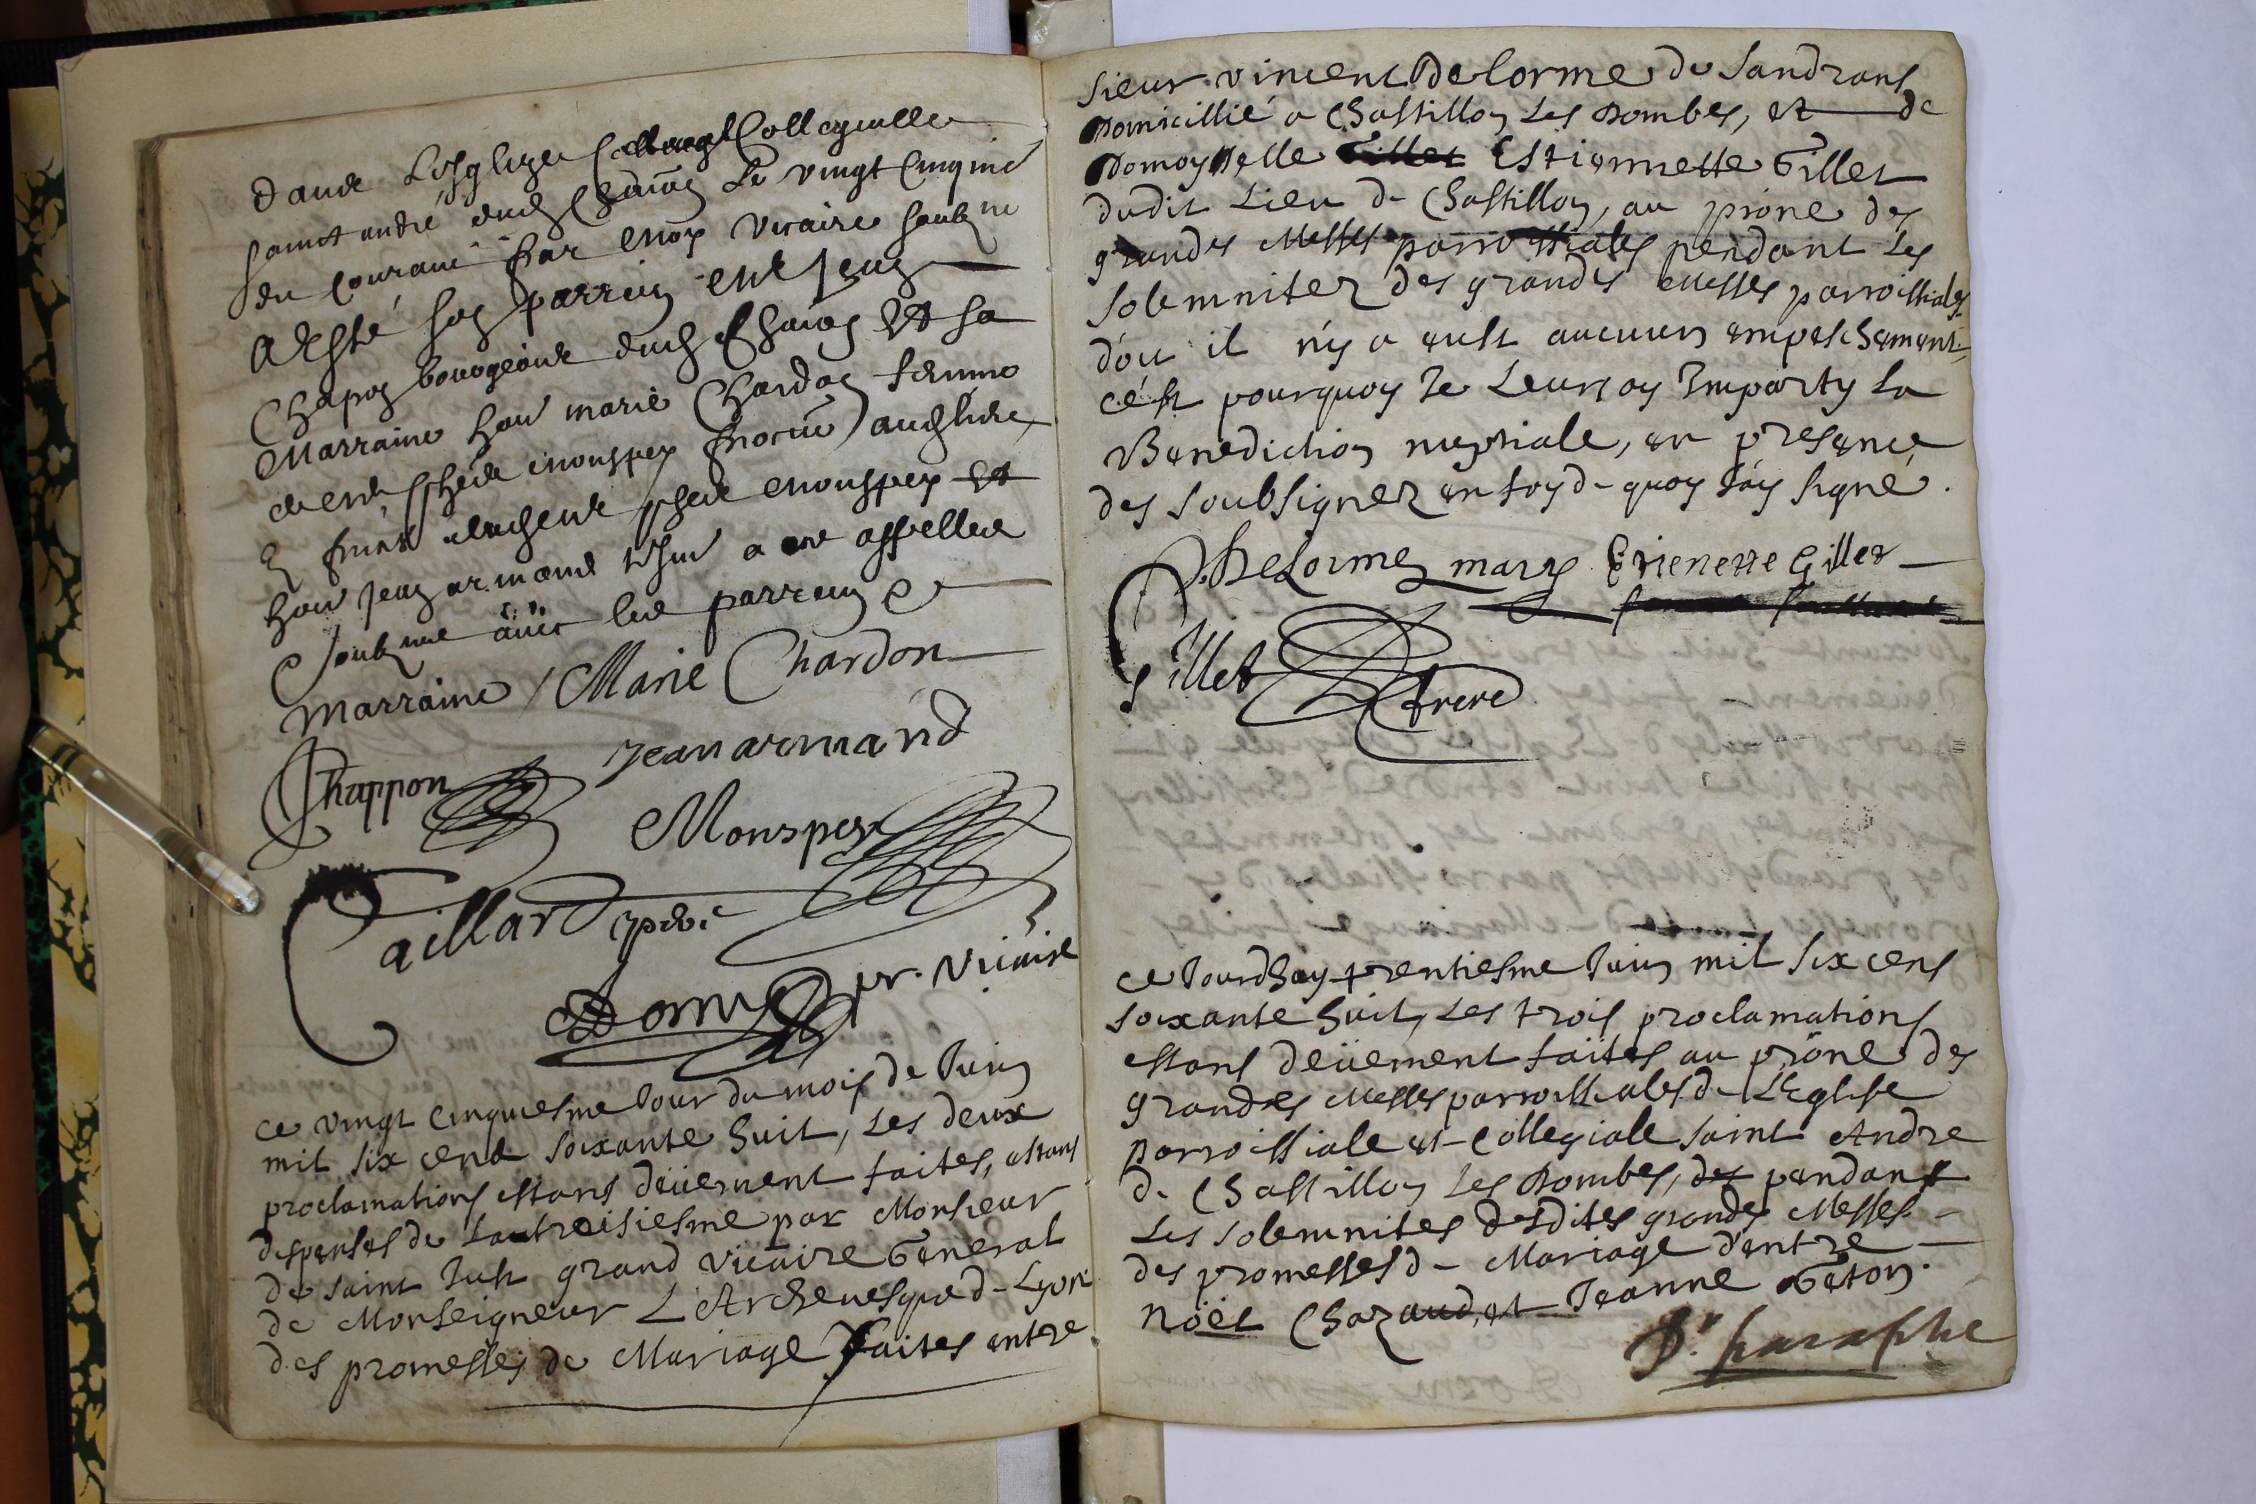 dans Lesglize Collegialle
sainct andré dud Le vingt Cinquie
du Courant par moy vicaire soubz ne
A Esté son parrein Mr Jean
Chapon bourgeois dud Et sa
Marraine hon marie Chardon femme
de Mr monspey
monspey Et
hon Jean armand a appelled
Soubz né avec les parrein et
marraine / Marie Chardon
Chappon Jean armand
Monspey
Caillard
pr. vicaire
ce vingt cinquiesme Jour du mois de Juin
mil six cent soixante huit, Les deux
proclamations estans deüement faites, estans
dispensés de Lautreisiesme par Monsieur
de saint Just grand vicaire General
de Monseigneur L'Archevesque d- Lyon
des promesses de Mariage faites entre
sieur vincent Delorme de Sandrans
Domicillié a Chastillon Les Dombes, et de
Domoyselle Estiennette Gillet
dudit Lieu d- Chastillon, au prone des
grandes Messes parroissiales pendant Les
solemnitez des grandes Messes parroissiales
d'ou il n'y a eust aucuun empeschement,
c'est pourquoy Je Leur ay Imparty La
Benediction nuptiale, en presence
des soubsignez en foy d- quoy J'ay signé.
Delorme mary Etienette Gillet
Gillet frere
ce Jourdhuy trentiesme Juin mil six cens
soixante huit, Les trois proclamations
estans deüement faites au prône des
grandes Messes parroissiales d- L'Eglise
parroissiale et Collegiale saint André
d- Chastillon Les Dombes, des pendant
Les solemnites desdites grandes Messes
des promesses d- Mariage d'entre
Noël Chazaud, et Jeanne Geton.
paraphé